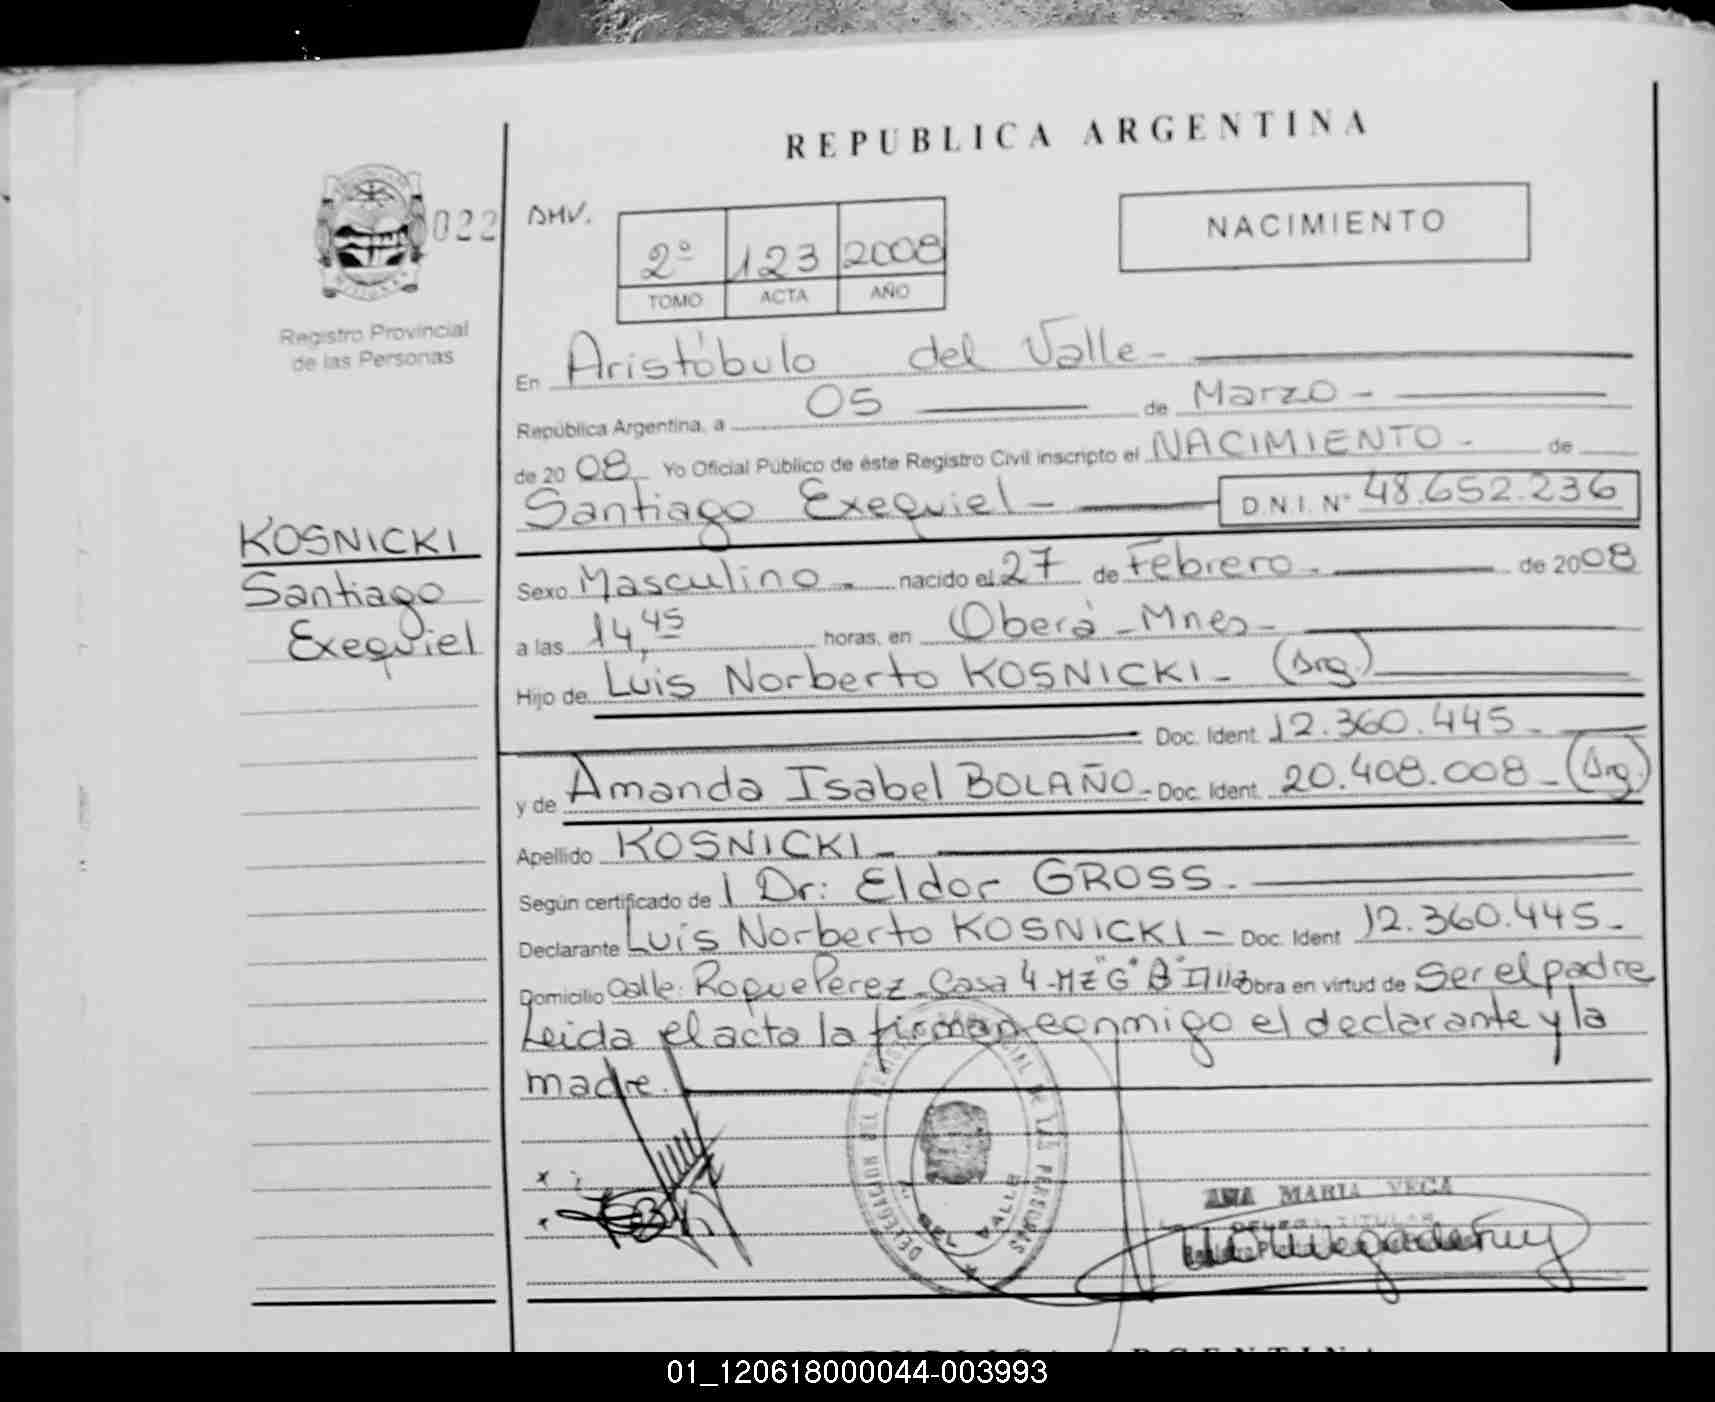 REPUBLICA ARGENTINA
022
DMV.
2º 123 2008
TOMO ACTA AÑO
NACIMIENTO
Registro Provincial
de las Personas
En Aristóbulo del Valle-
República Argentina, a 05 de Marzo -
de 20 08 Yo Oficial Público de éste Registro Civil inscripto el NACIMIENTO - de
Santiago Exequiel - D.N.I. Nº 48.652.236
KOSNICKI
Santiago
Exequiel
Sexo Masculino - nacido el 27 de Febrero - de 2008
a las 14,45 horas, en Oberá - Mnes -
Hijo de Luis Norberto KOSNICKI - (Arg.)
Doc. Ident. 12.360.445 -
y de Amanda Isabel BOLAÑO - Doc. Ident. 20.408.008 - (Arg)
Apellido KOSNICKI -
Según certificado de l Dr: Eldor GROSS -
Declarante Luis Norberto KOSNICKI - Doc. Ident 12.360.445 -
Domicilio Calle: Roque Perez - Casa 4 - MZ "G" Bº Obra en virtud de Ser el padre
Leida el acta la firman conmigo el declarante y la
madre.
DELEGACION DEL REGISTRO PROVINCIAL DE LAS PERSONAS
DEL VALLE
ANA MARIA VEGA
01_120618000044-003993